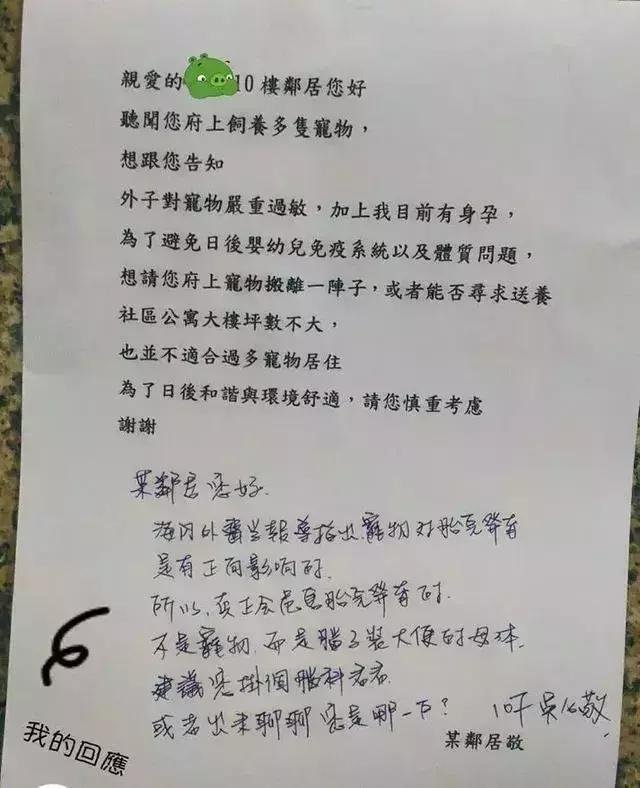 親愛的 10樓鄰居您好
聽聞您府上飼養多隻寵物，
想跟您告知
外子對寵物嚴重過敏，加上我目前有身孕，
為了避免日後嬰幼兒免疫系統以及體質問題，
想請您府上寵物搬離一陣子，或者能否尋求送養
社區公寓大樓坪數不大，
也並不適合過多寵物居住
為了日後和諧與環境舒適，請您慎重考慮
謝謝
某鄰居您好.
海內外醫學報導指出寵物對胎兒發育
是有正面影响的.
所以,真正会危害胎兒發育的.
不是寵物.而是腦子裝大便的母体.
建議您掛個腦科看看.
或者出來聊聊您是哪一下?
10F 吳 敬
某鄰居敬
我的回應